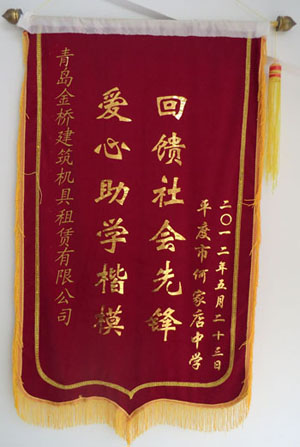 青岛金桥建筑机具租赁有限公司
爱心助学楷模
回馈社会先锋
平度市何家店中学
二〇一二年五月二十三日